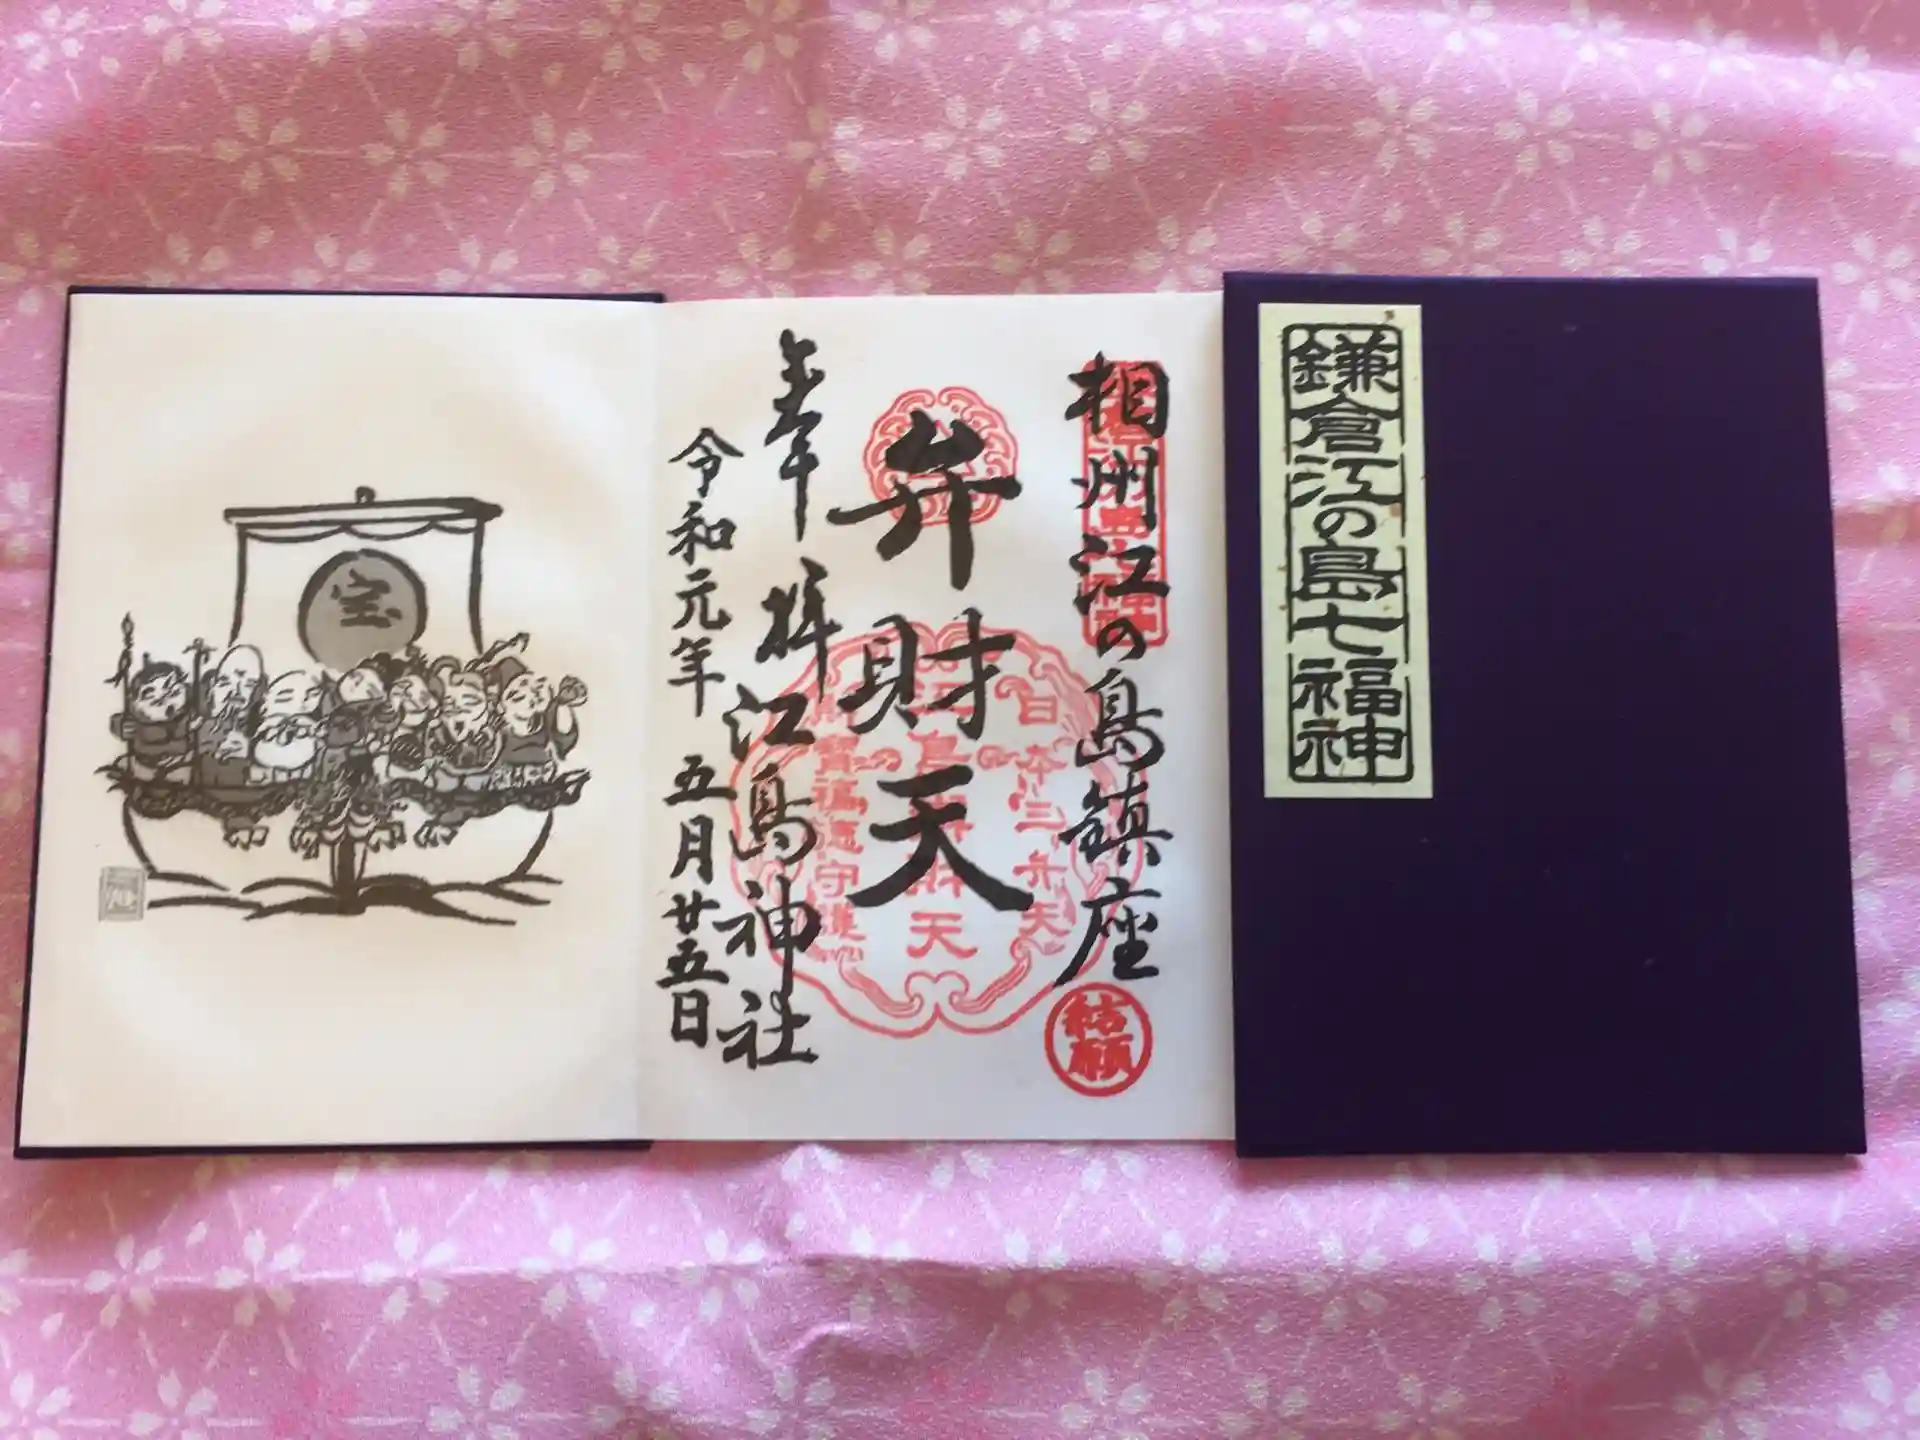 鎌倉江の島七福神
相州江の島鎮座
結願
弁財天
日本三弁天
江島弁財天
奉拝
江島神社
令和元年
五月廿五日
宝